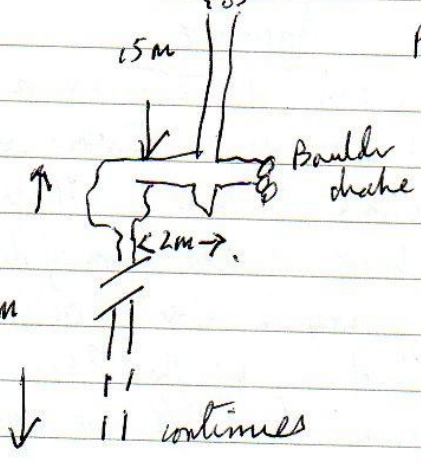 15m
Boulder
choke
<2m→
m
continues